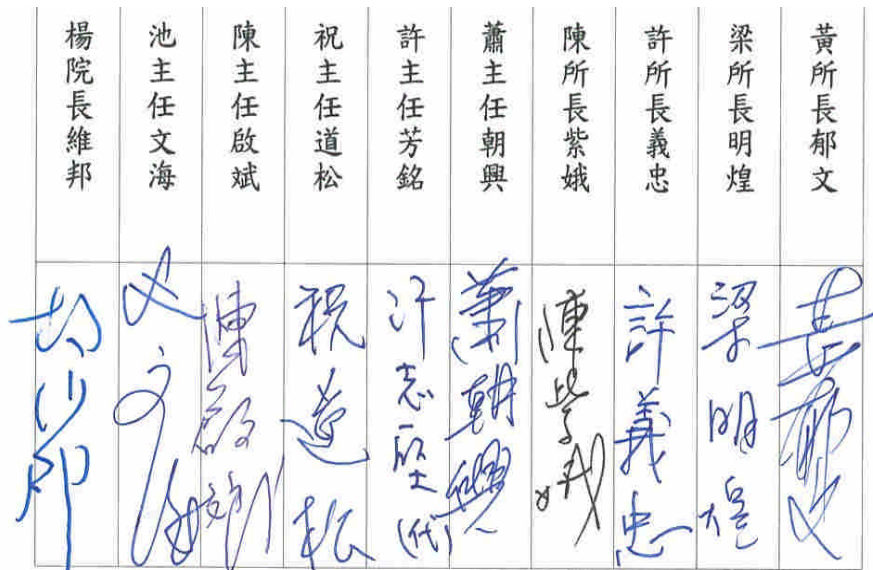 黃所長郁文
梁所長明煌
許所長義忠
陳所長紫娥
蕭主任朝興
許主任芳銘
祝主任道松
陳主任啟斌
池主任文海
楊院長維邦
黃郁文
梁明煌
許義忠
陳紫娥
蕭朝興
許志堅(代)
祝道松
陳啟斌